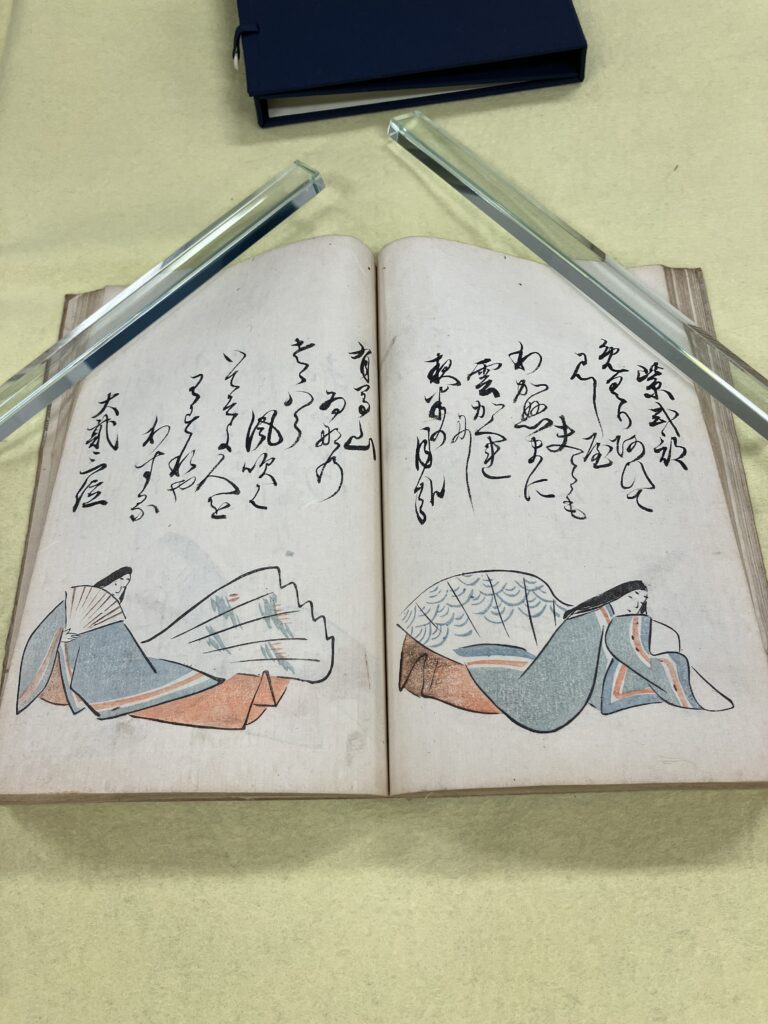 紫式部
めくりあひて
見し屋
夫とも
わかぬまに
雲かくれ
にし
夜半の月
有馬山
ゐなの
さゝハら
風吹は
いてそよ人を
わすれや
わする
大弐三位